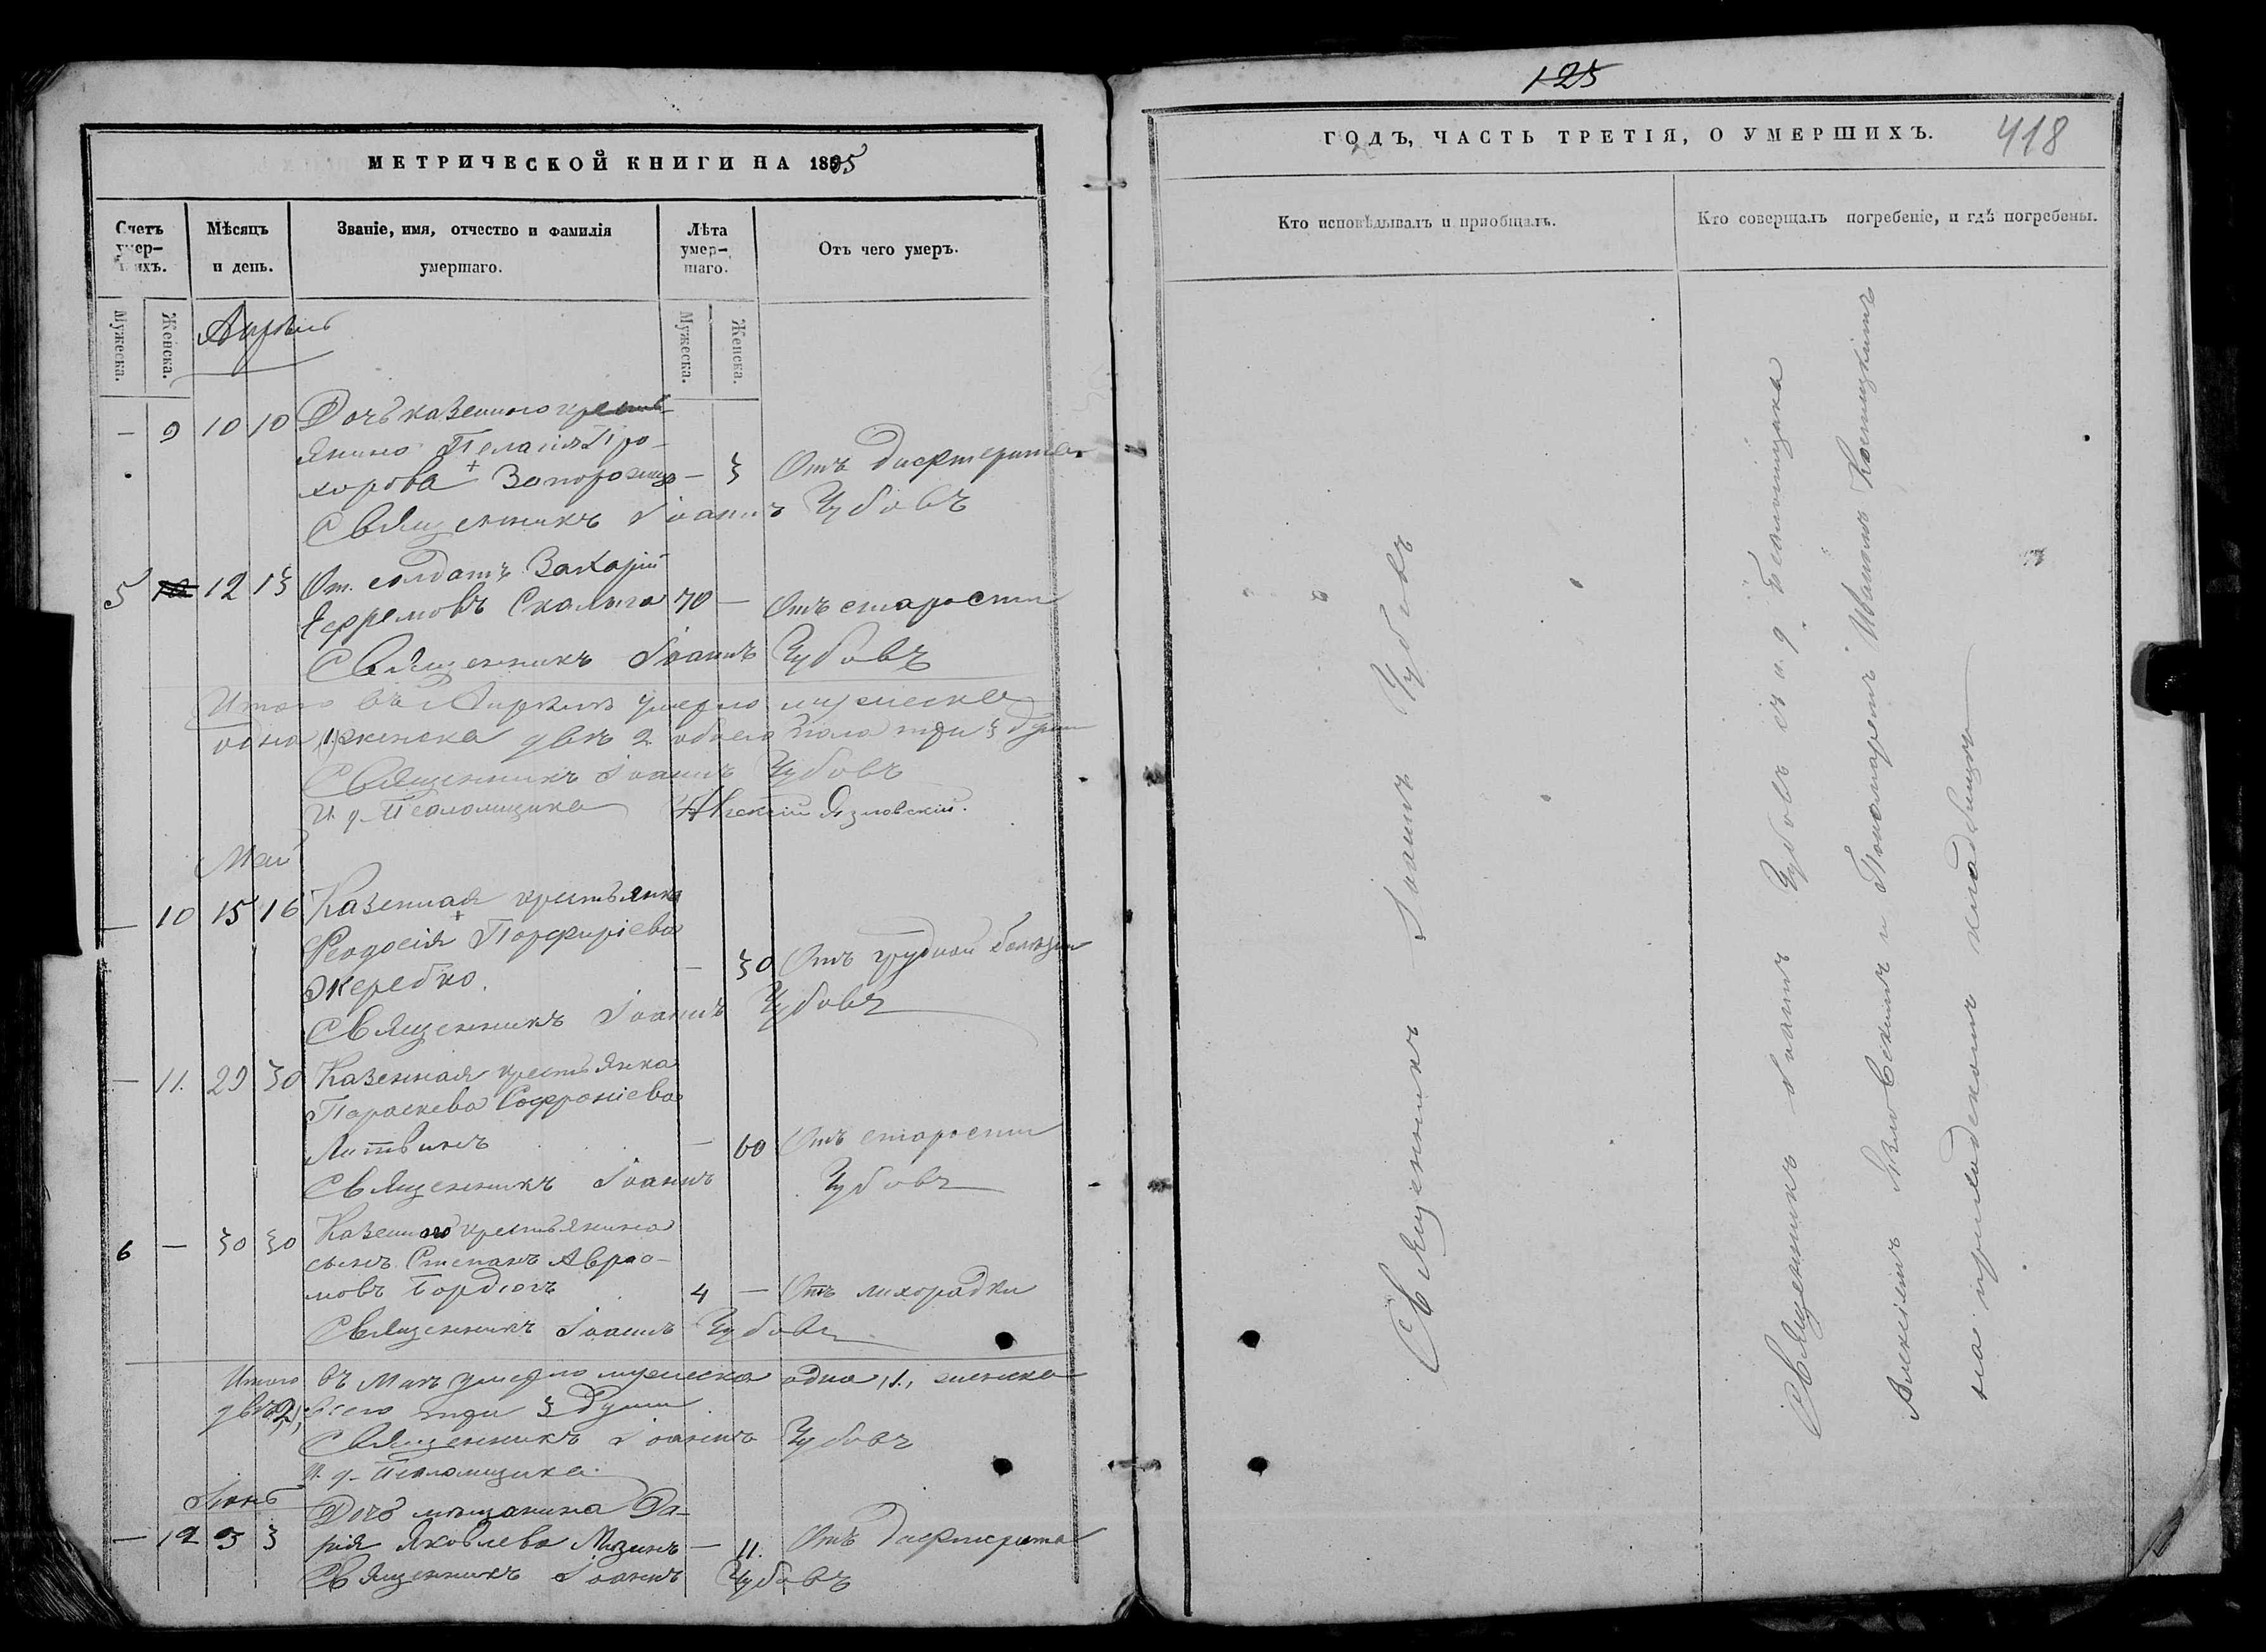 МЕТРИЧЕСКОЙ КНИГИ НА 1895
Счетъ умер-шихъ.
Мѣсяцъ и день.
Званіе, имя, отчество и фамилія умершаго.
Лѣта умер-шаго.
Отъ чего умеръ.
Мужеска.
Женска.
Мужеска.
Женска.
Апрѣль
— 9 10 10 Дочь казеннаго кресть-
янина Пелагія Про-
хорова Запорожецъ — 3 Отъ дифтерита
Священникъ Іоаннъ Чубовъ
5 12 13 От. солдатъ Захарій
Ефремовъ Скалыга 70 — Отъ старости
Священникъ Іоаннъ Чубовъ
Итого въ Апрѣлѣ умерло мужеска
одна (1) женска двѣ 2 обоего пола три 3 души
Священникъ Іоаннъ Чубовъ
И. д. Псаломщика Алексій Язловскій.
Май
— 10 15 16 Казенная крестьянка
Ѳеодосія Порфиріева
Жеребко. — 30 Отъ грудной болѣзни
Священникъ Іоаннъ Чубовъ
— 11. 29 30 Казенная крестьянка
Параскева Софроніева
Литвинъ — 60 Отъ старости
Священникъ Іоаннъ Чубовъ
6 — 30 30 Казеннаго крестьянина
сынъ Стефанъ Авраа-
мовъ Бордюгъ 4 — Отъ лихорадки
Священникъ Іоаннъ Чубовъ
Итого въ Маѣ умерло мужеска одна (1), женска
двѣ (2), всего три 3 души
Священникъ Іоаннъ Чубовъ
И. д. Псаломщика
Іюнь
— 12 3 3 Дочь мѣщанина Да-
рія Яковлева Мизинъ — 11. Отъ дифтерита
Священникъ Іоаннъ Чубовъ
125
ГОДЪ, ЧАСТЬ ТРЕТІЯ, О УМЕРШИХЪ.
418
Кто исповѣдывалъ и приобщалъ.
Кто совершалъ погребеніе, и гдѣ погребены.
Священникъ Іоаннъ Чубовъ
Священникъ Іоаннъ Чубовъ съ и. д. Псаломщика
Алексіемъ Язловскимъ и Пономаремъ Иваномъ Костицкимъ
на приходскомъ кладбищѣ